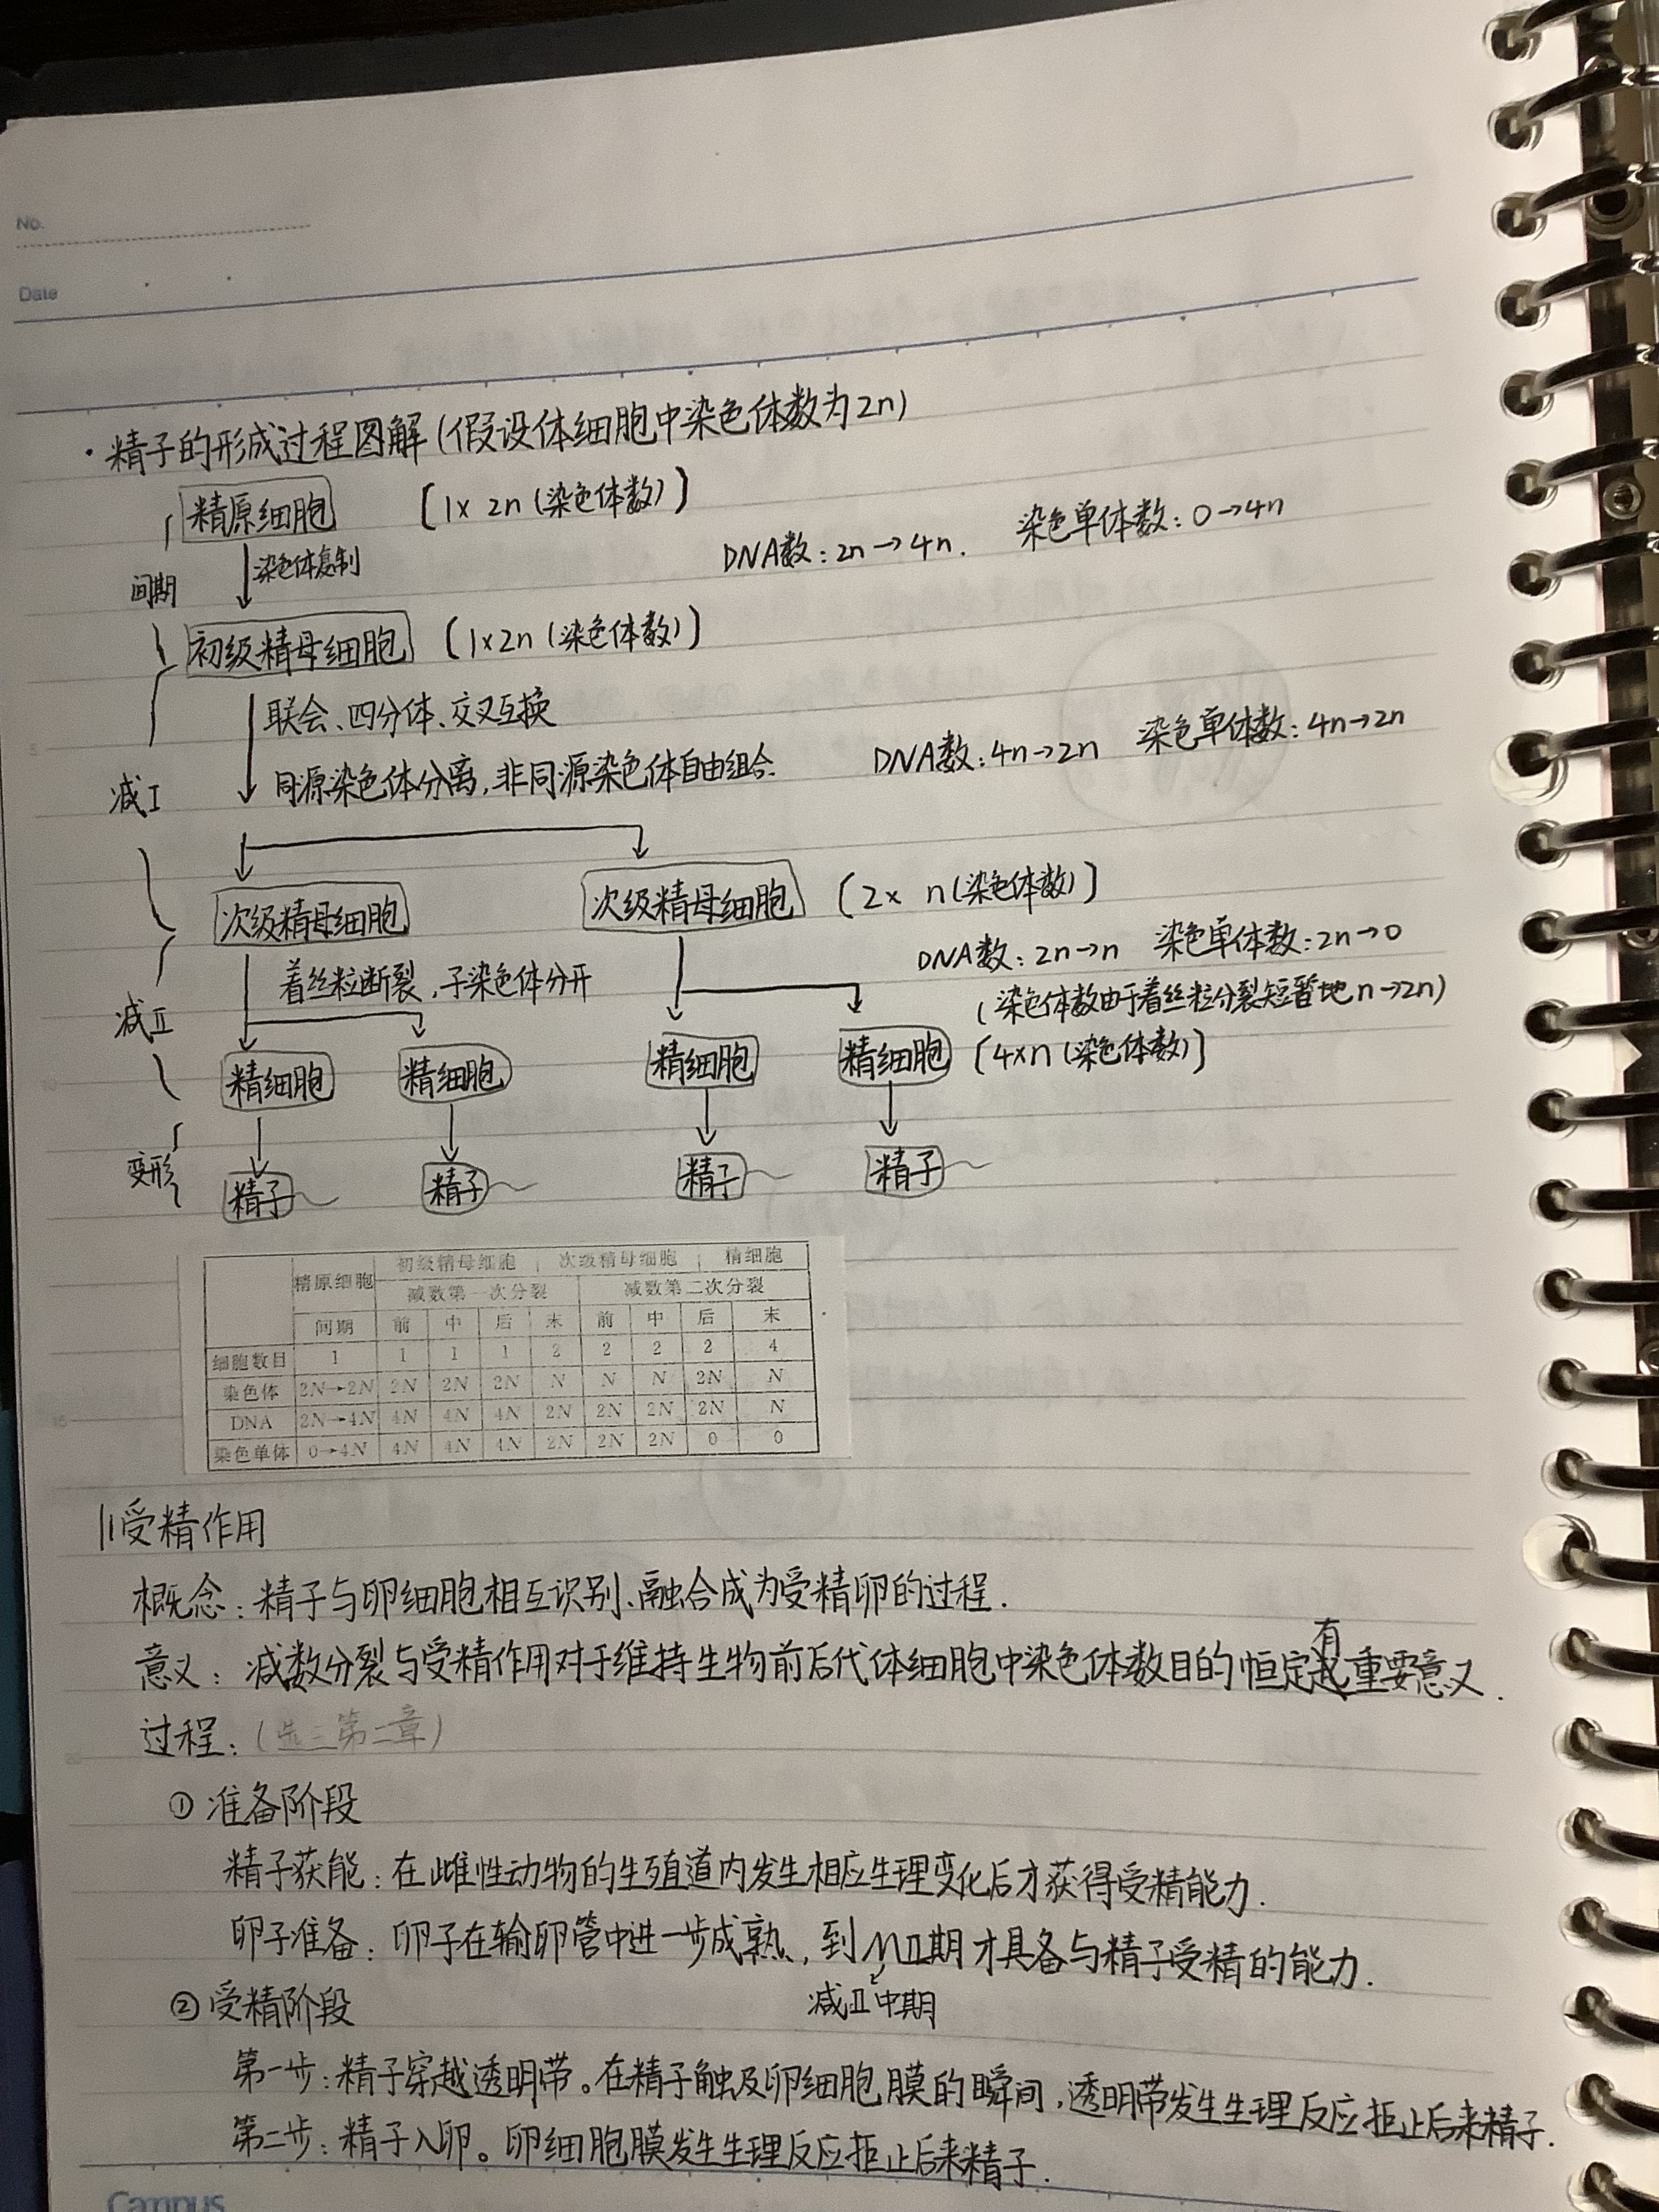 No.
Date
·精子的形成过程图解(假设体细胞中染色体数为2n)
精原细胞 [1×2n(染色体数)]
间期 染色体复制 DNA数:2n→4n. 染色单体数:0→4n
初级精母细胞 [1×2n(染色体数)]
联会、四分体、交叉互换
减I 同源染色体分离,非同源染色体自由组合. DNA数:4n→2n 染色单体数:4n→2n
次级精母细胞 次级精母细胞 [2× n(染色体数)]
着丝粒断裂,子染色体分开 DNA数:2n→n 染色单体数:2n→0
减Ⅱ (染色体数由于着丝粒分裂短暂地n→2n)
精细胞 精细胞 精细胞 精细胞 [4×n(染色体数)]
变形 精子 精子 精子 精子
精原细胞 初级精母细胞 次级精母细胞 精细胞
减数第一次分裂 减数第二次分裂
间期 前 中 后 末 前 中 后 末
细胞数目 1 1 1 1 2 2 2 2 4
染色体 2N→2N 2N 2N 2N N N N 2N N
DNA 2N→4N 4N 4N 4N 2N 2N 2N 2N N
染色单体 0→4N 4N 4N 4N 2N 2N 2N 0 0
受精作用
概念:精子与卵细胞相互识别、融合成为受精卵的过程.
意义:减数分裂与受精作用对于维持生物前后代体细胞中染色体数目的恒定有重要意义.
过程:(选三第二章)
① 准备阶段
精子获能:在雌性动物的生殖道内发生相应生理变化后才获得受精能力.
卵子准备:卵子在输卵管中进一步成熟,到MⅡ期才具备与精子受精的能力.
减Ⅱ中期
② 受精阶段
第一步:精子穿越透明带。在精子触及卵细胞膜的瞬间,透明带发生生理反应拒止后来精子.
第二步:精子入卵。卵细胞膜发生生理反应拒止后来精子.
Campus